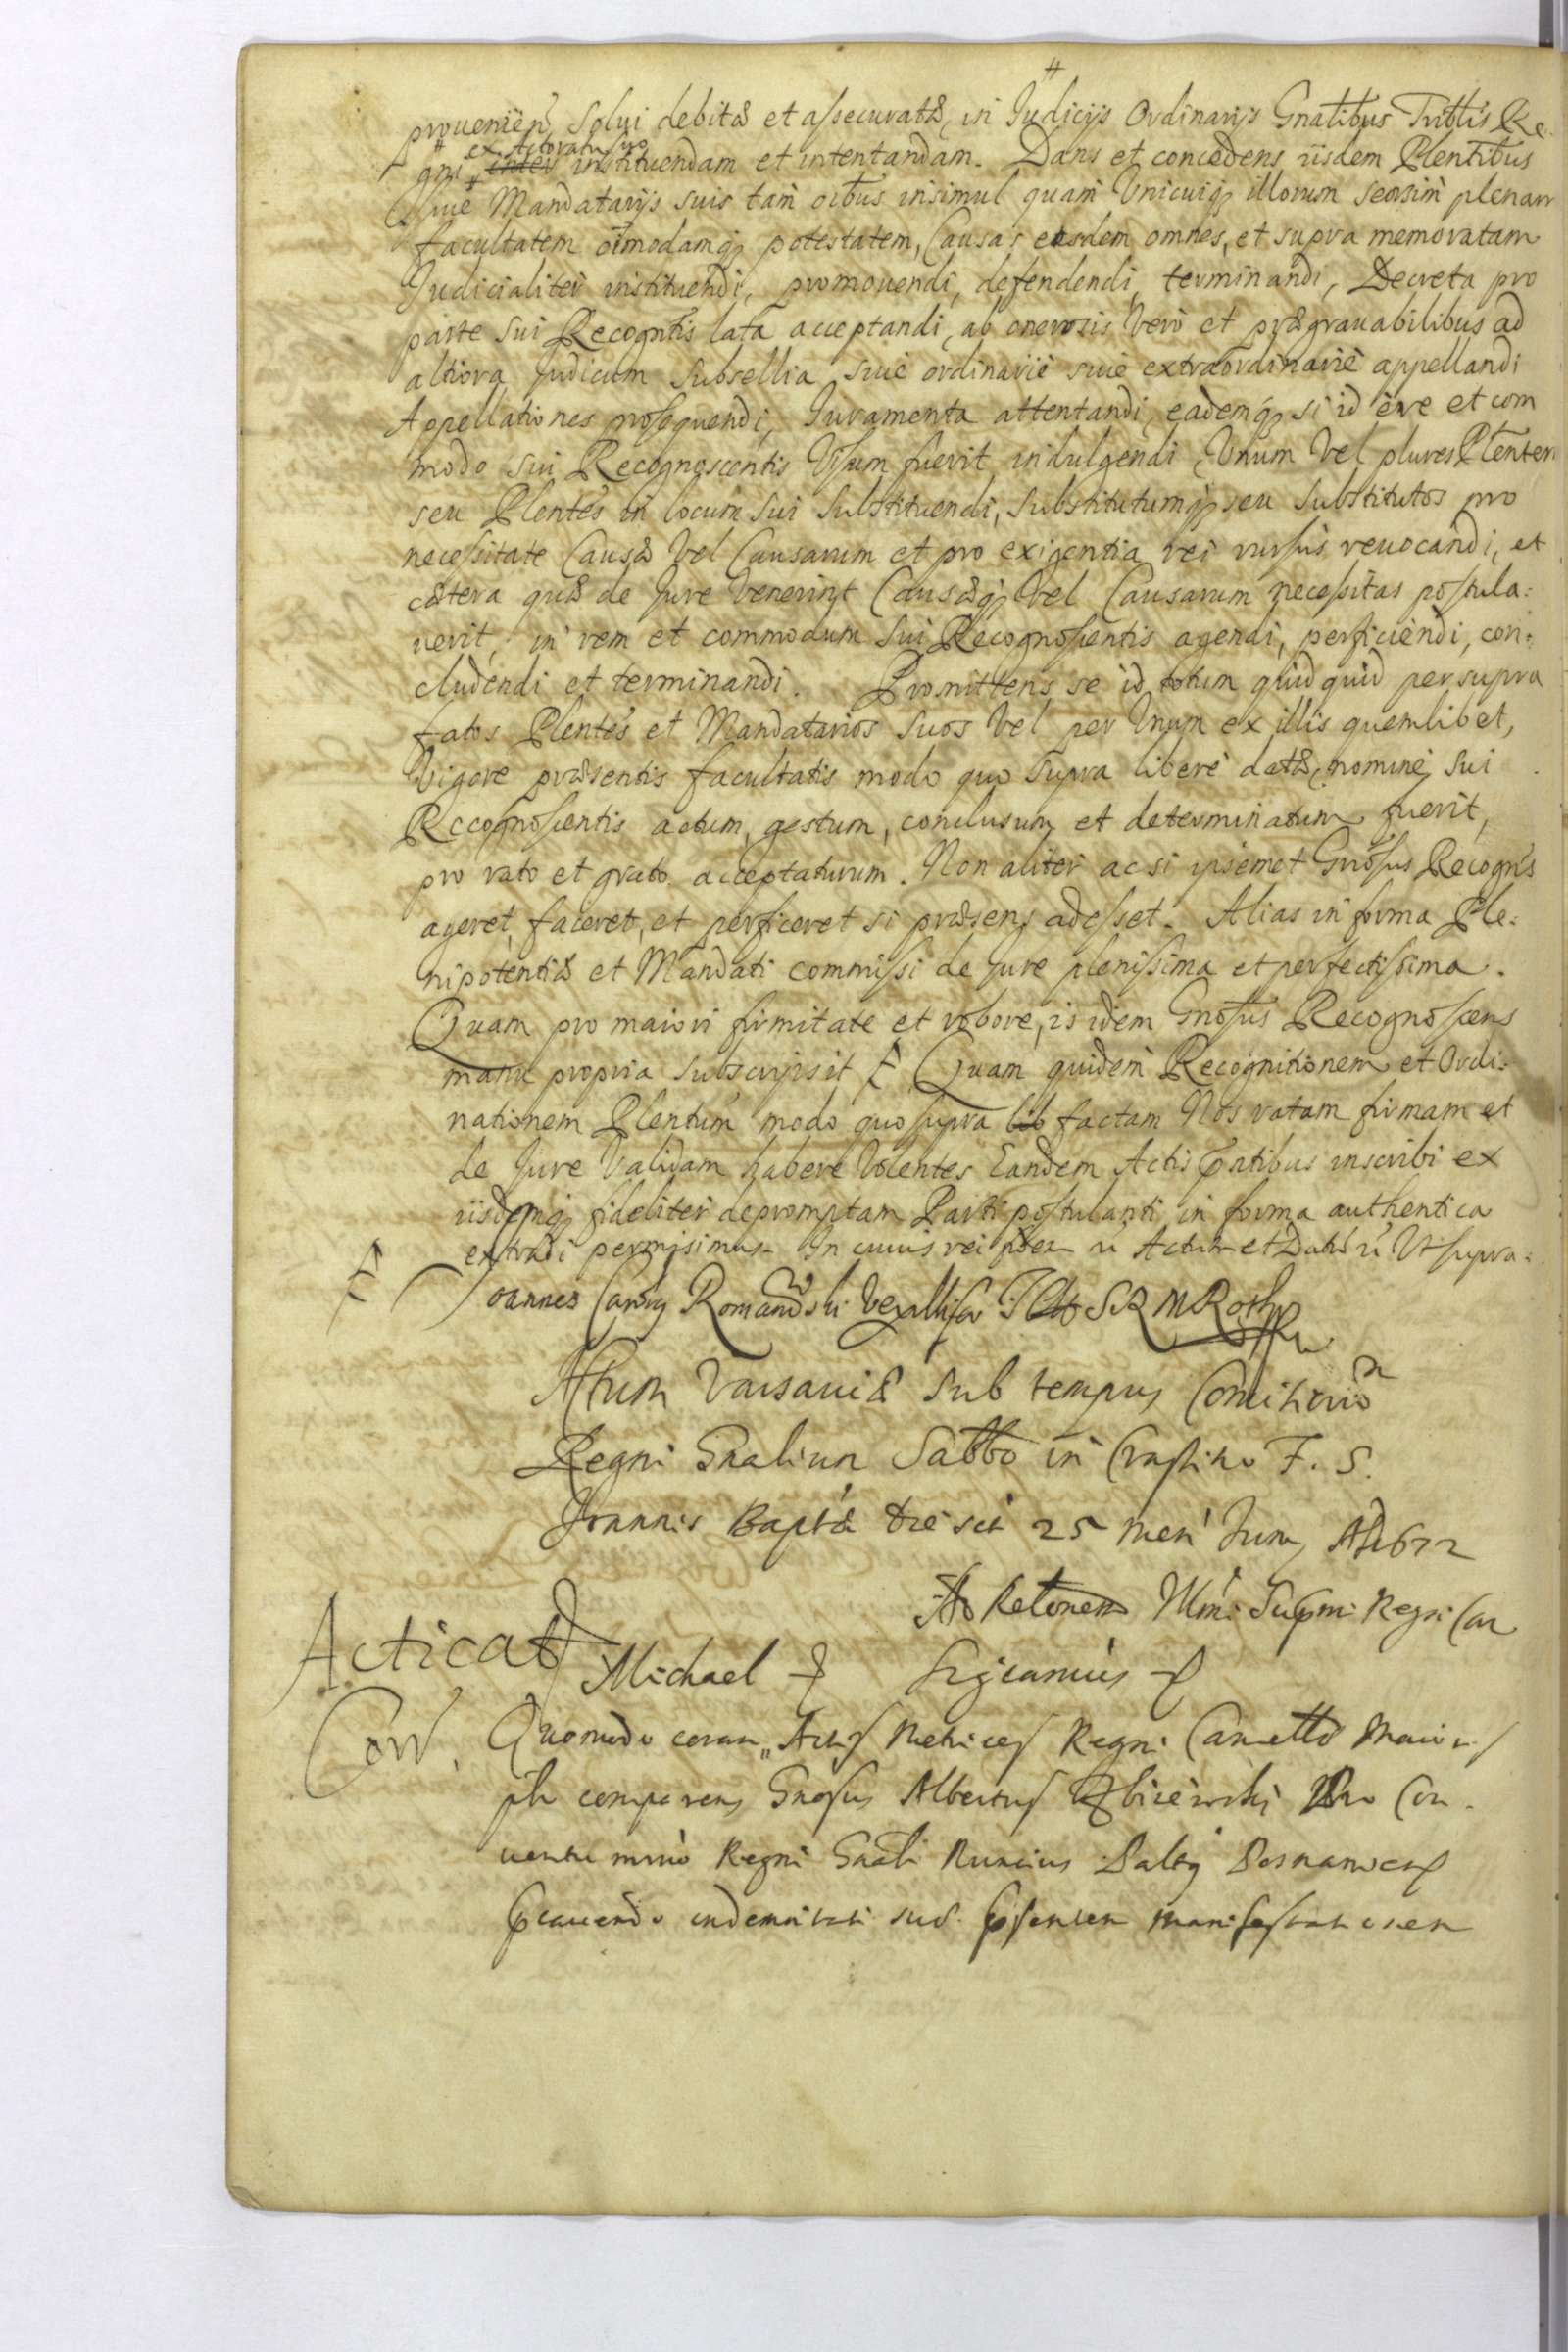 prouenien, Solui debitæ et assecuratæ, in Judicijs Ordinarijs Gnalibus Tribtis Re-
gni ex Actoratu suo instituendam et intentandam. Dans et concedens iisdem Plentibus
siue Mandatarijs suis tam oibus insimul quam Vnicuiq illorum seorsim plenam
facultatem oimodamq potestatem, Causas easdem omnes, et supra memoratam
Judicialiter instituendi, promouendi, defendendi, terminandi, Decreta pro
parte sui Recogntis lata acceptandi, ab onerosis Vero et prægrauabilibus ad
altiora Judicum Subsellia, siue ordinarie siue extraordinarie appellandi
Appellationes prosequendi, Juramenta attentandi, eademq si id e re et com
modo sui Recognoscentis Visum fuerit, indulgendi, Vnum Vel plures Plentem
seu Plentes in locum sui substituendi, substitutumq seu substitutos pro
necessitate Causæ Vel Causarum et pro exigentia rei rursus reuocandi, et
cætera quæ de Jure Venerint Causæq Vel Causarum necessitas postula:
uerit, in rem et commodum sui Recognoscentis agendi, perficiendi, con:
cludendi et terminandi. Promittens se id totum quidquid per supra
fatos Plentes et Mandatarios suos Vel per Vnum ex illis quemlibet,
Vigore præsentis facultatis modo quo supra libere datæ, nomine sui
Recognoscentis actum, gestum, conclusum et determinatum fuerit,
pro rato et grato acceptaturum. Non aliter ac si ipsemet Gnosus Recogns
ageret, faceret, et perficeret si præsens adesset. Alias in forma Ple:
nipotentiæ et Mandati commissi de Jure plenissima et perfectissima.
Quam pro maiori firmitate et robore, is idem Gnosus Recognoscens
manu propria subscripsit Quam quidem Recognitionem et Ordi:
nationem Plentium modo quo supra lib factam Nos ratam firmam et
de Jure Validam habere Volentes Eandem Actis pntibus inscribi ex
iisdemq fideliter depromptam Parti postulanti in forma authentica
extradi permisimus. In cuius rei fidem Actum et Datum Vt supra.
Joannes Romanowski SRM
Actum Varsauiæ sub tempus Comitiorum
Regni Gnalium Sabbo in Crastino F. S.
Joannis Baptæ die sct 25 mens Juny AD 1672
Ad Relonem Illmi Supmi Regni Can
Acticat
Michael
Cow. Quomodo coram Actis Metrices Regni Cancell Maioris
plr comparens Gnosus Albertus
uentu Regni Gnali Nuncius Palts Posnaniens
præcauendo indemnitati suæ præsentem manifestationem